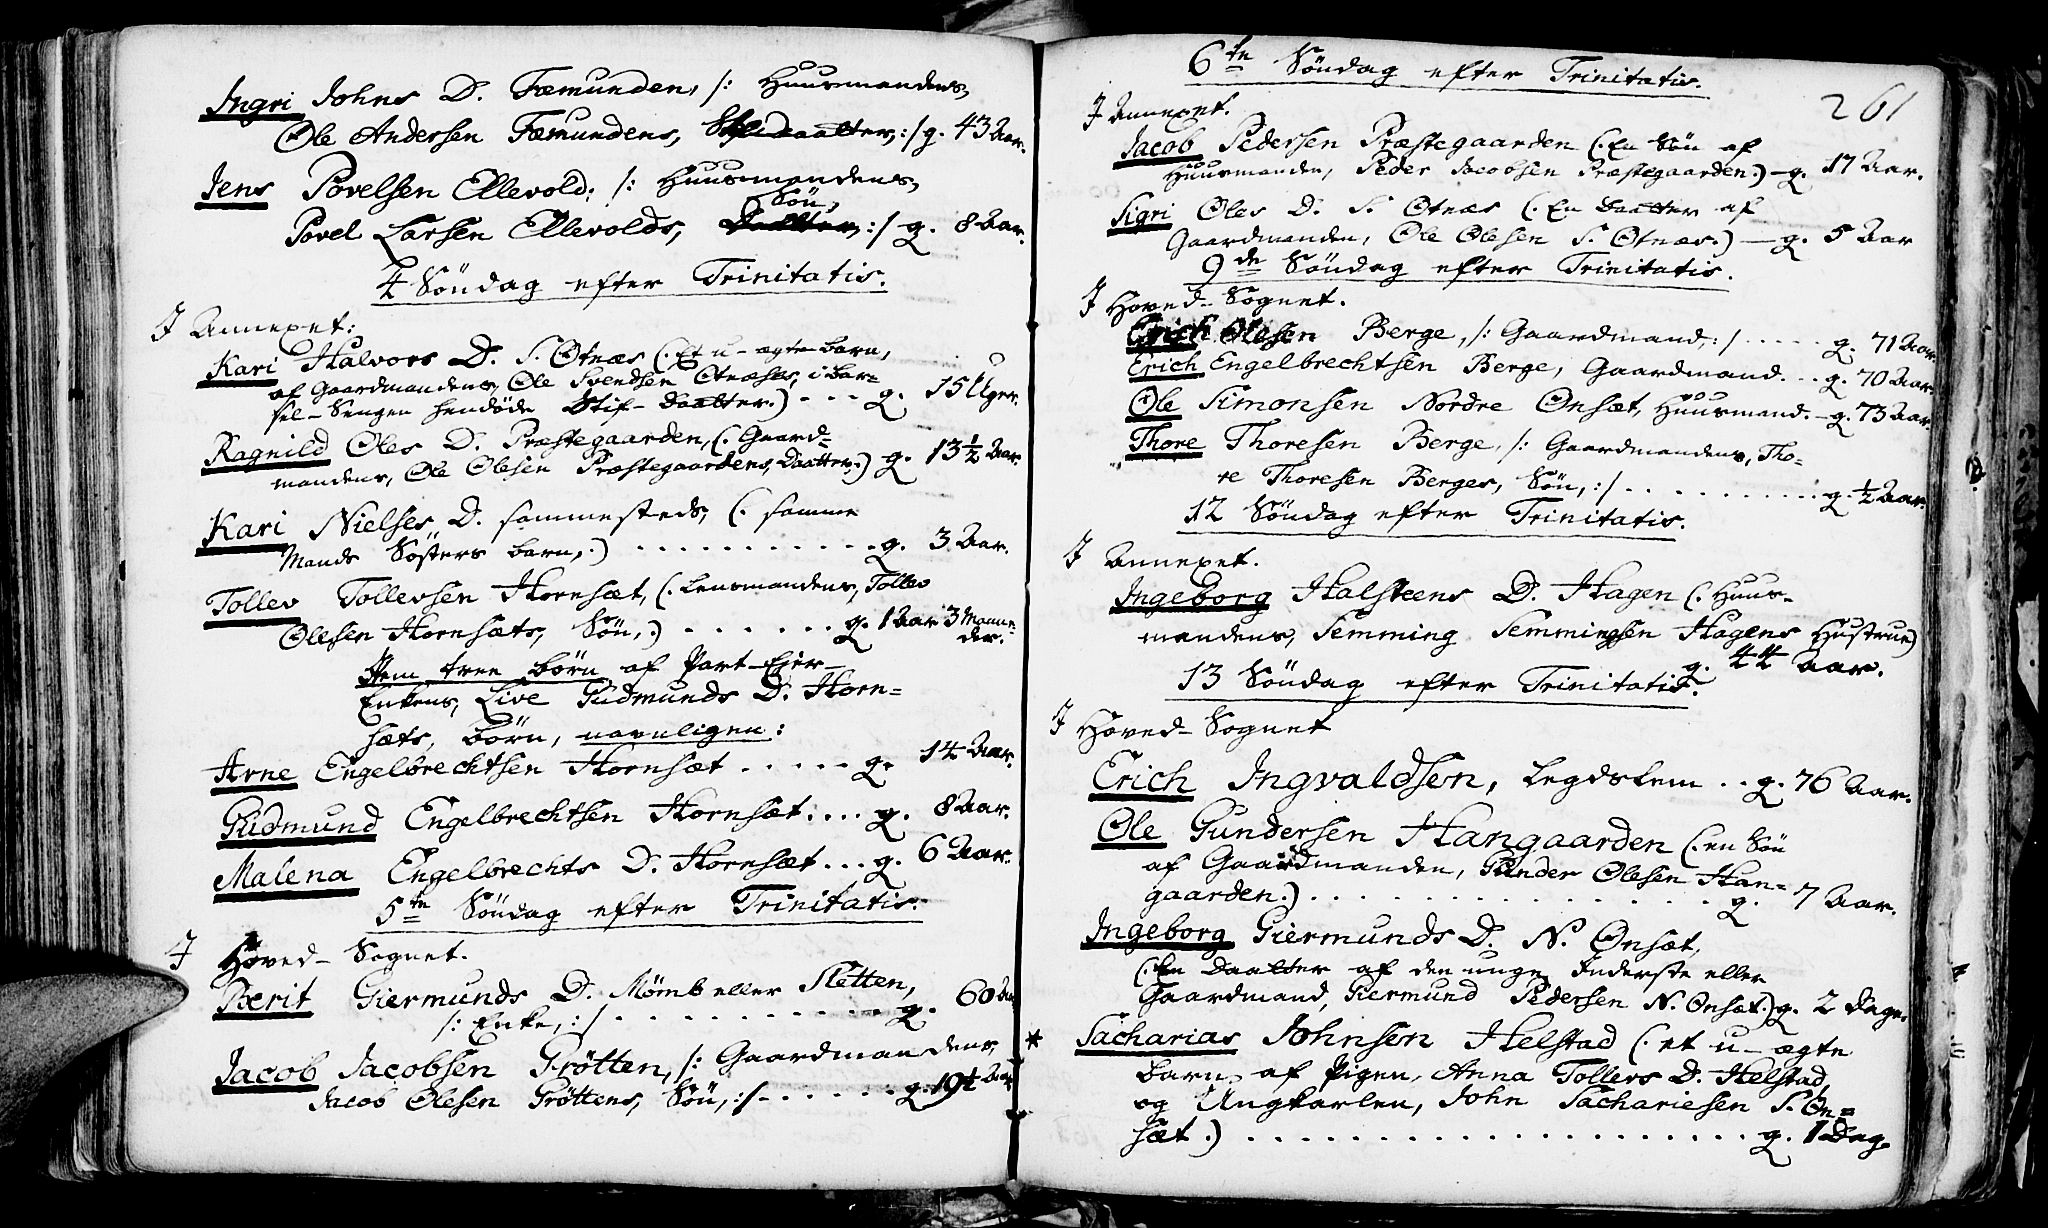 Ingri Johns D. Fæmunden, /: Huusmandens,
Ole Andersen Fæmundens, :/ g. 43 Aar.
Jens Povelsen Ellevold; /: Huusmandens,
Søn,
Povel Larsen Ellevolds, Daatter, :/ g. 8 Aar.
4 Søndag efter Trinitatis.
I Annexet:
Kari Halvors D. S. Øtnæs (. Et u-ægte Barn,
af Gaardmandens, Ole Svendsen Øtnæses, i Bar=
sel-Sengen hendøde Stif-Daatter.) - - - g. 15 Uger.
Ragnild Oles D. Præstegaarden, (. Gaard=
mandens, Ole Olesen Præstegaardens, Daatter,.) g. 13 ½ Aar.
Kari Nielses D. sammesteds, (. samme
Mands Søsters Barn,.) . . . . . . . . . . . g. 3 Aar.
Tollev Tollevsen Hornsæt, (. Lensmandens, Tollev
Olesen Hornsæts, Søn,.) . . . . . . g. 1 Aar 3 Maane=
der.
Item tree Børn af Part-Ejer-
Enkens, Live Gudmunds D. Horn=
sæts, Børn, navnligen:
Arne Engelbrechtsen Hornsæt . . . . . g. 14 Aar.
Gudmund Engelbrechtsen Hornsæt . . . . g. 8 Aar.
Malena Engelbrechts D. Hornsæt . . . g. 6 Aar.
5te Søndag efter Trinitatis.
I Hoved-Sognet.
Berit Giermunds D. Mømb eller Sletten,
/: Enke, :/ . . . . . . . . . . . g. 60 Aar
Jacob Jacobsen Grøtten, /: Gaardmandens,
Jacob Olesen Grøttens, Søn, :/ - . . . . . . g. 19½ Aar
6te Søndag efter Trinitatis.
261
I Annexet.
Jacob Pedersen Præstegaarden (. En Søn af
Huusmanden, Peder Jacobsen Præstegaarden.) - g. 17 Aar.
Sigri Oles D. S. Øtnæs (. En Daatter af
Gaardmanden, Ole Olesen S. Øtnæs.) — g. 5 Aar
9de Søndag efter Trinitatis.
I Hoved-Sognet.
Erich Olesen Berge, /: Gaardmand, :/ . . . . . g. 71 Aar.
Erich Engelbrechtsen Berge, Gaardmand. . . g. 70 Aar.
Ole Simonsen Nordre Ønsæt, Huusmand. - g. 73 Aar.
Thore Thoresen Berge, /: Gaardmandens, Tho=
re Thoresen Berges, Søn, :/ . . . . . . . . . . g. ½ Aar.
12 Søndag efter Trinitatis.
I Annexet.
Ingeborg Halsteens D. Hagen (. Huus-
mandens, Semming Semmingsen Hagens Hustrue)
g. 44 Aar.
13 Søndag efter Trinitatis.
I Hoved-Sognet
Erich Ingvaldsen, Legdslem . . g. 76 Aar.
Ole Gundersen Hangaarden (. en Søn
af Gaardmanden, Gunder Olesen Han=
gaarden.) . . . . . . . . . . . . . . . . . g. 7 Aar.
Ingeborg Giermunds D. N. Ønsæt,
(. En Daatter af den unge Inderste eller
Gaardmand, Giermund Pedersen N. Ønsæt.) g. 2 Dage.
* Sacharias Johnsen Helstad (. et u-ægte
Barn, af Pigen, Anna Tollevs D. Helstad,
og Ungkarlen, John Sachariesen S. Øn=
sæt.) . . . . . . . . . . . . . . . . . . . . . g. 1 Dag.